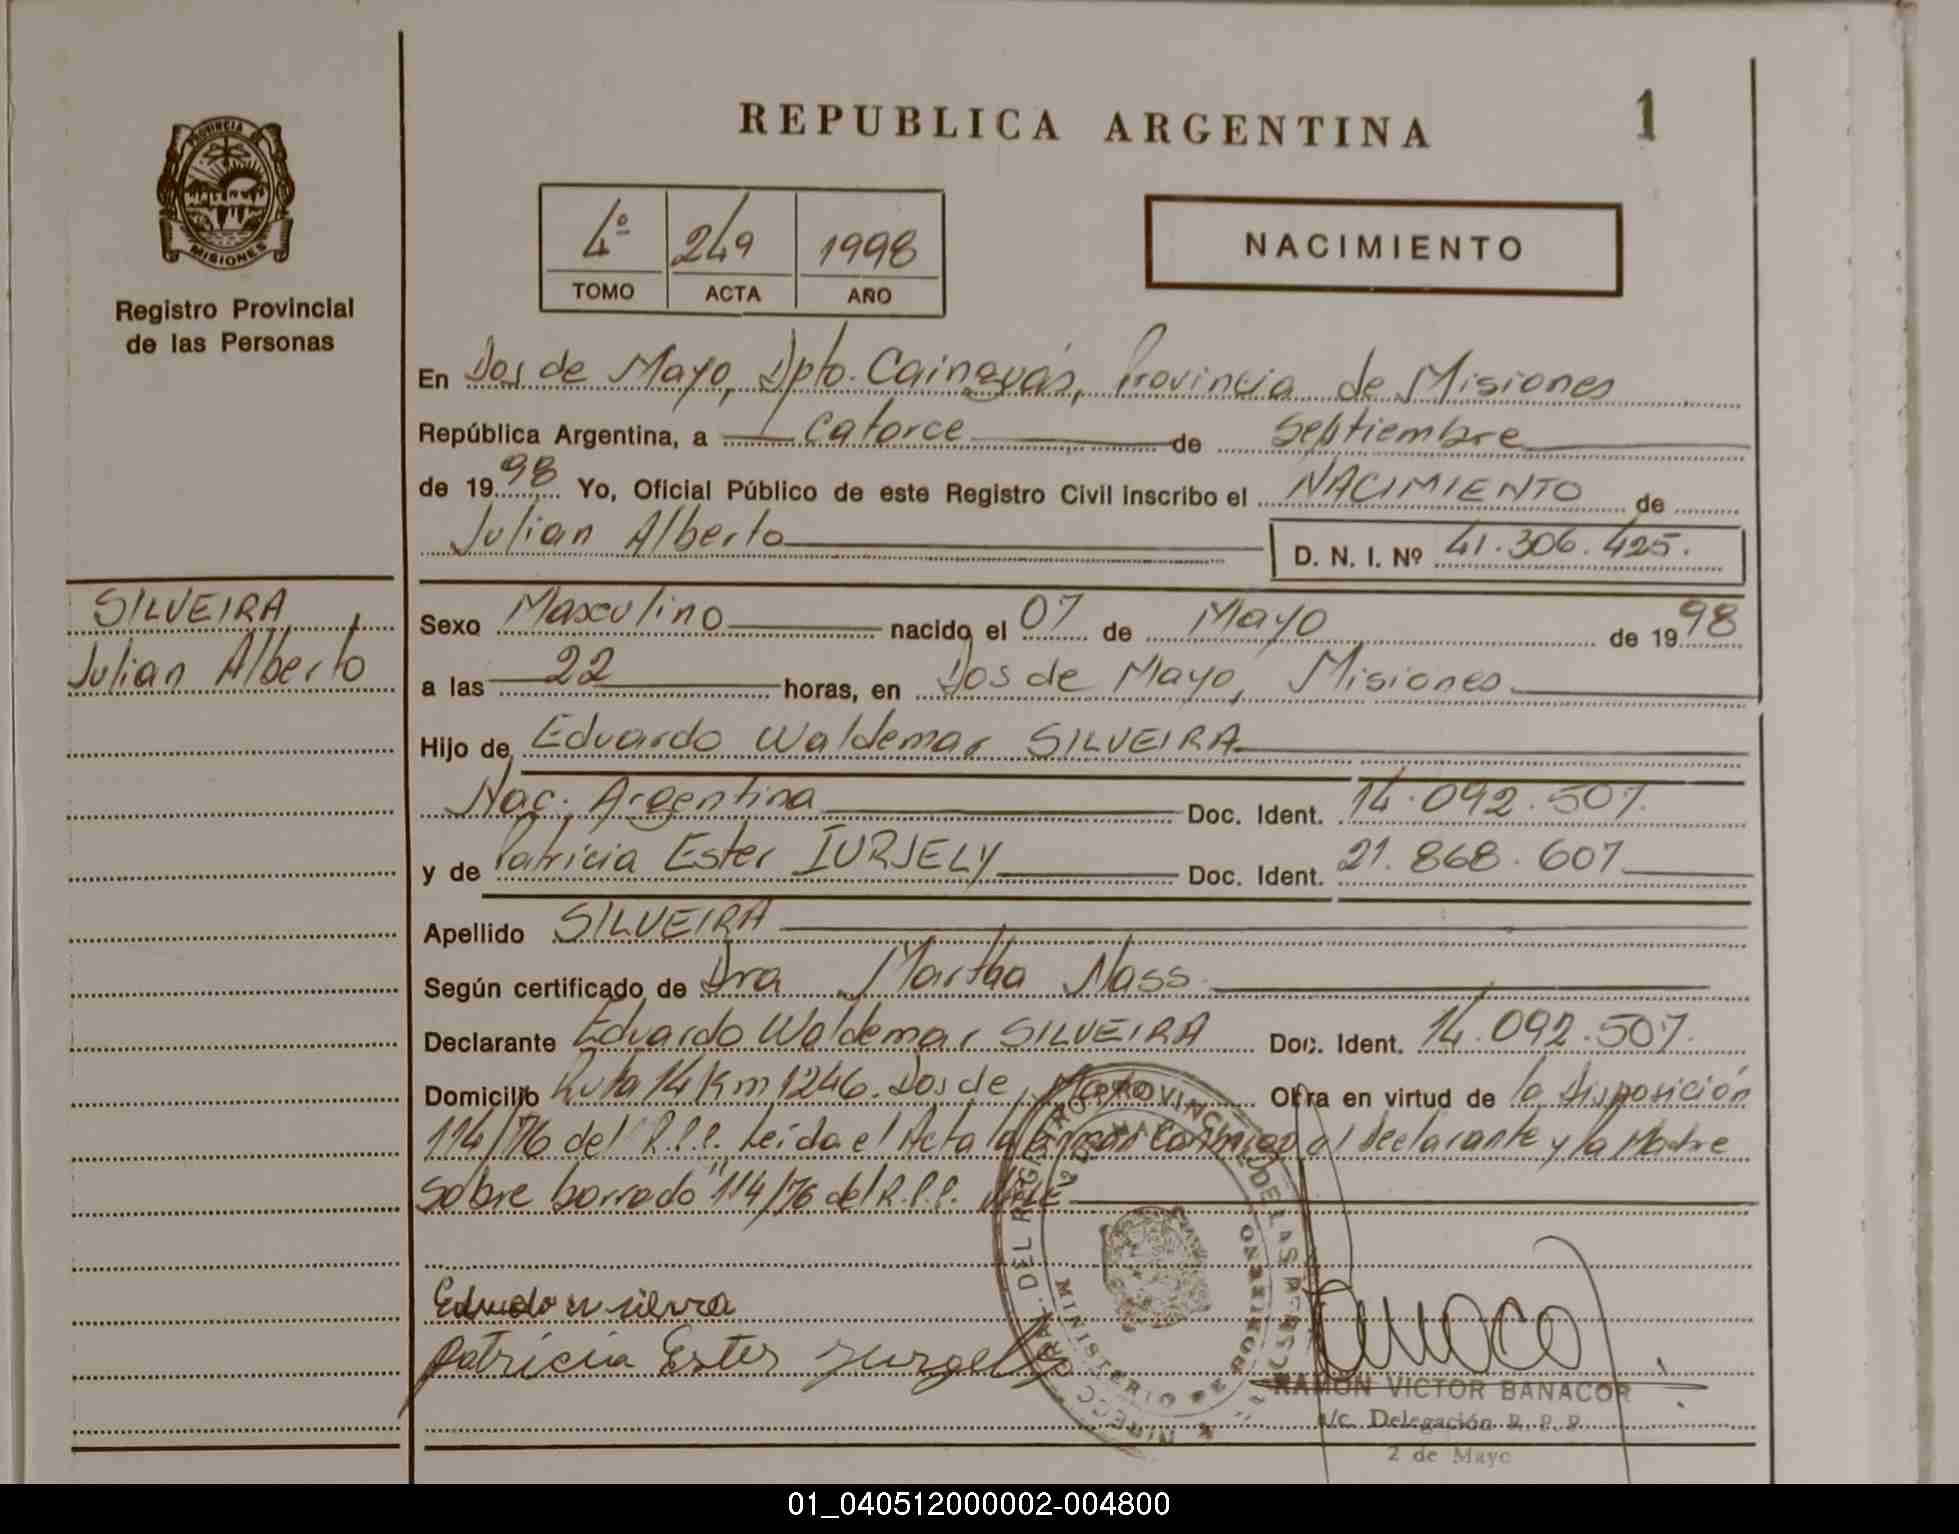 REPUBLICA ARGENTINA
1
PROVINCIA
MISIONES
Registro Provincial
de las Personas
4º 249 1998
TOMO ACTA AÑO
NACIMIENTO
En Dos de Mayo, Dpto. Cainguás, Provincia de Misiones
República Argentina, a Catorce de Septiembre
de 1998 Yo, Oficial Público de este Registro Civil inscribo el NACIMIENTO de
Julian Alberto D. N. I. Nº 41.306.425.
SILVEIRA
Julian Alberto
Sexo Masculino nacido el 07 de Mayo de 1998
a las 22 horas, en Dos de Mayo, Misiones
Hijo de Eduardo Waldemar SILVEIRA
Nac. Argentina Doc. Ident. 14.092.507.
y de Patricia Ester IURJELY Doc. Ident. 21.868.607
Apellido SILVEIRA
Según certificado de Dra Martha Nass
Declarante Eduardo Waldemar SILVEIRA Doc. Ident. 14.092.507.
Domicilio Ruta 14 Km 1246. Dos de Mayo Obra en virtud de la disposición
114/76 del R.P.P. Leída el Acta la firman Conmigo el declarante y la Madre
Sobre borrado "114/76 del R.P.P. VALE
Patricia Ester
RAMON VICTOR BANACOR
a/c. Delegación R. P. P.
2 de Mayo
01_040512000002-004800